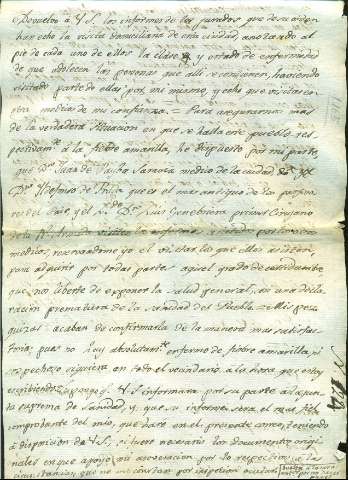 Devuelvo á V.S. los informes de los jurados que de su orden
han echo la visita domiciliaria de esta ciudad, anotando al
pie de cada uno de ellos la clase y estado de enfermedad
de que adolecen las personas que alli se contienen, haviendo
visitado parte de ellas por mi mismo, y echo que visiten
otra medicos de mi confianza. = Para asegurarme mas
de la verdadera situacion en que se halla este pueblo res-
pectivam.te á la fiebre amarilla, he dispuesto por mi parte,
que D.n Juan de medico de la ciudad
D.n Ildefonso de que es el mas antiguo de los profeso-
res del Pais, y el D.n Luis primer Cirujano
de la R.l Armada visiten los enfermos visitados por los otros
medicos, reservandome yo el visitar los que ellos asisten,
para adquirir por todas partes aquel grado de certidumbre
que nos liberte de exponer la salud general, en una decla-
racion prematura de la sanidad del Pueblo. = Mis pes-
quizas acaban de confirmarla de la manera mas satisfac-
toria, pues no hay absolutam.te enfermo de fiebre amarilla, ni
sospechoso siquiera en todo el vecindario á la hora que estoy
escribiendo. V.S. informara por su parte á la jun-
ta suprema de Sanidad, y, que su informe sera el mas
comprobante del mio, que dare en el proximo correo, teniendo
á disposicion de V.S., si fuere necesario los documentos origi-
nales en que apoyo mi asociacion por lo respectivo a las
circunstancias que no me constan por inspeccion ocular.